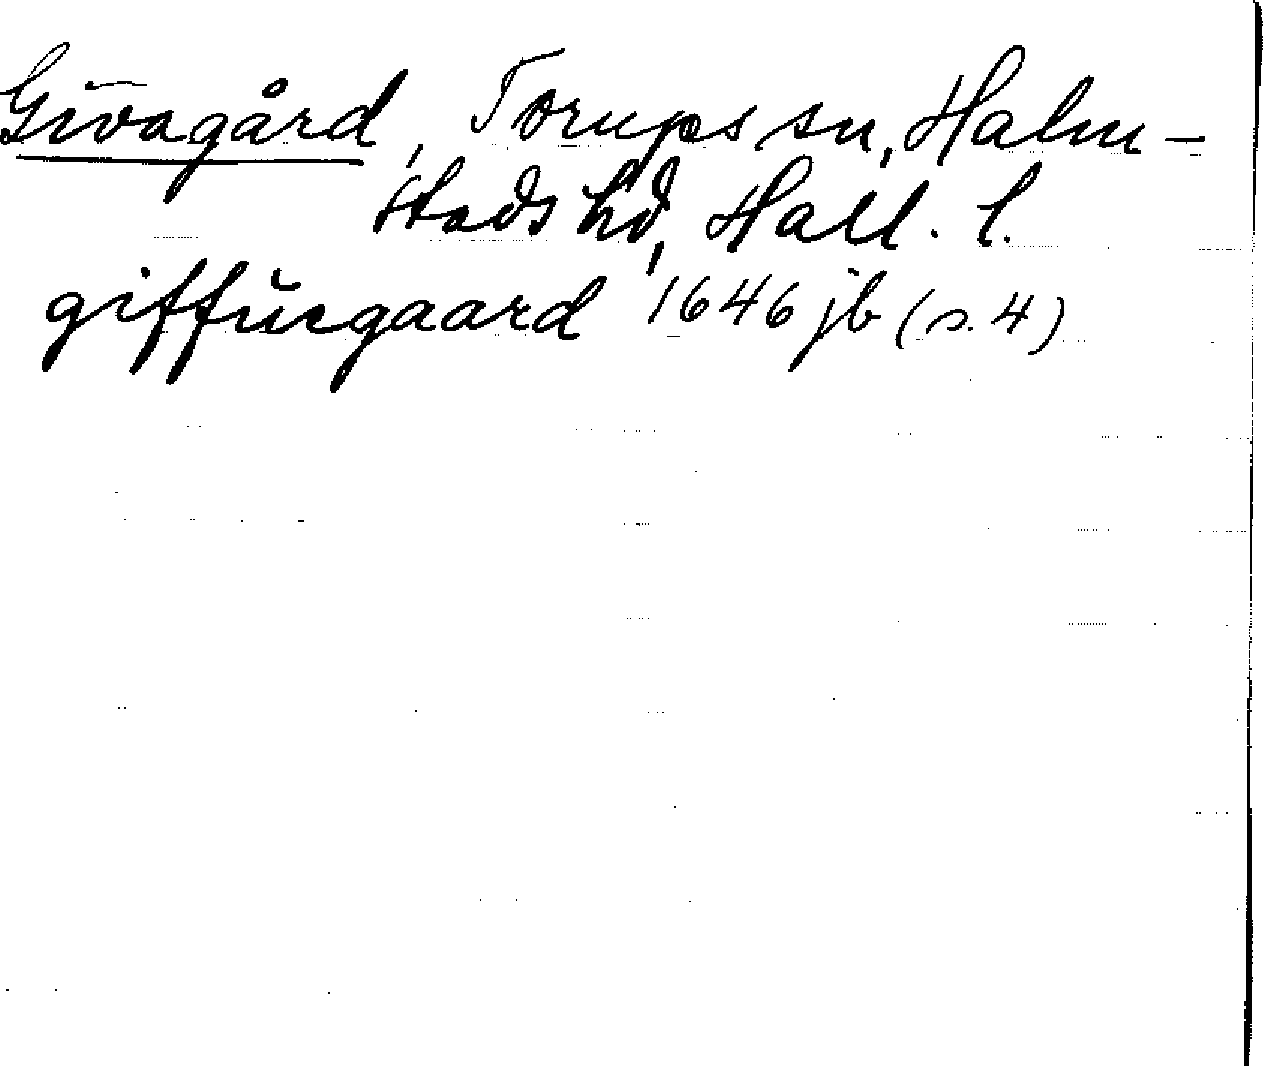 Givagård, Torups sn, Halm-
stads hd, Hall. l.
giffuegaard 1646 jb (s. 4)